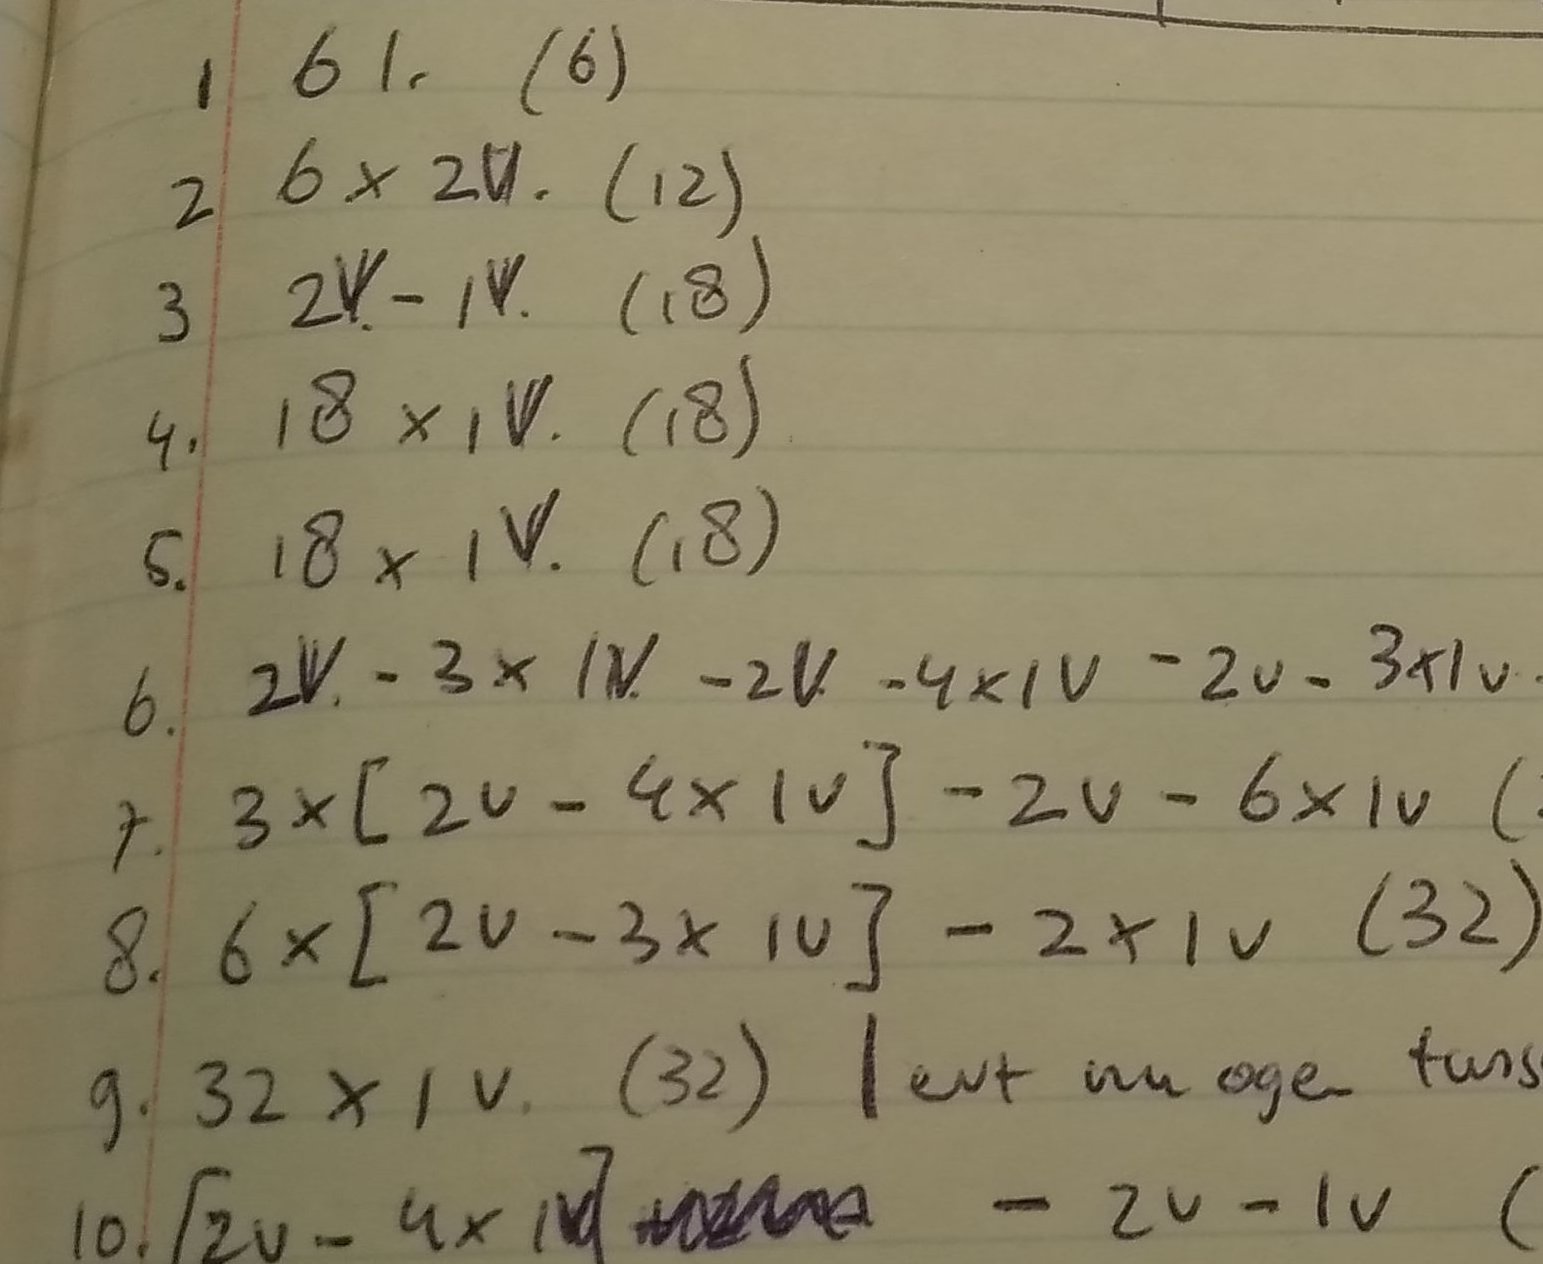 1 6 l. (6)
2 6 x 2V. (12)
3 2V. - 1V. (18)
4. 18 x 1V. (18)
5. 18 x 1V. (18)
6. 2V. - 3 x 1V. - 2V. - 4 x 1V - 2v - 3 x 1v -
7. 3 x [2v - 4 x 1v] - 2v - 6 x 1v (
8. 6 x [2v - 3 x 1v] - 2 x 1v (32)
9. 32 x 1v. (32) | evt nu ogen tuss
10. [2v - 4 x 1v] - 2v - 1v (